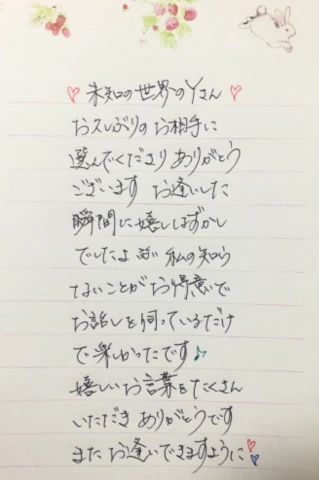 ♡ 未知の世界のYさん ♡
お久しぶりの お相手に
選んでくださり ありがとう
ございます お逢いした
瞬間に嬉しはずかし
でしたよ 私の知ら
ないことが お得意で
お話しを伺っているだけ
で 楽しかったです♪
嬉しいお言葉をたくさん
いただき ありがとうです
また お逢いできますように♡♡